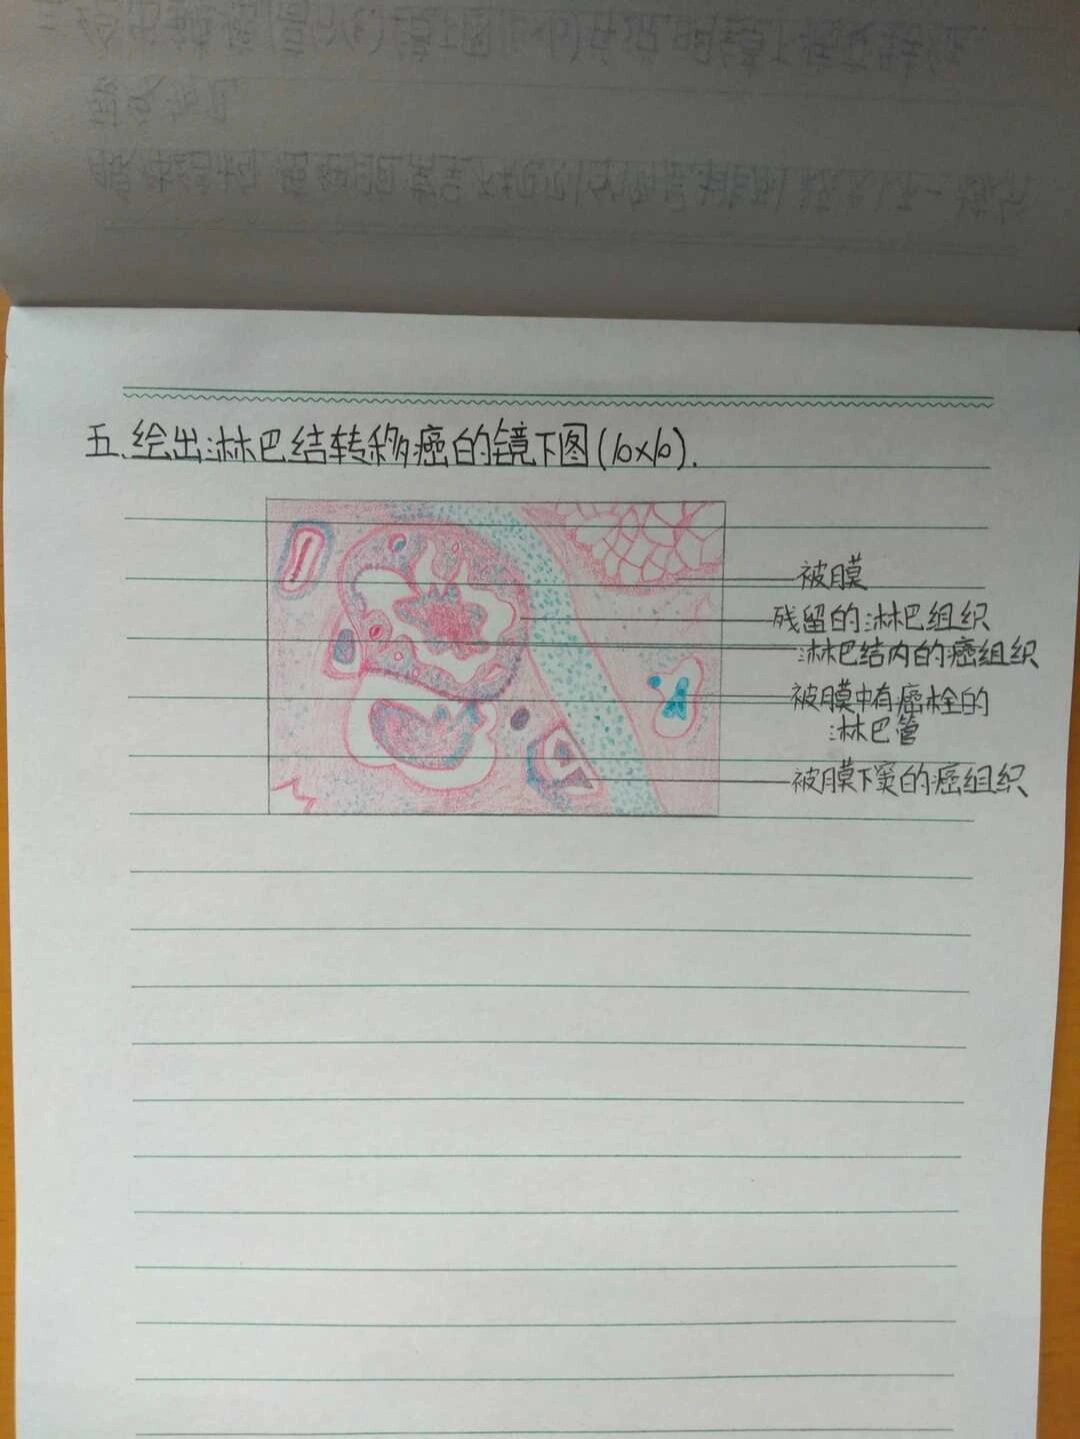 五、绘出淋巴结转移癌的镜下图(10×10).
被膜
残留的淋巴组织
淋巴结内的癌组织
被膜中有癌栓的
淋巴管
被膜下窦的癌组织